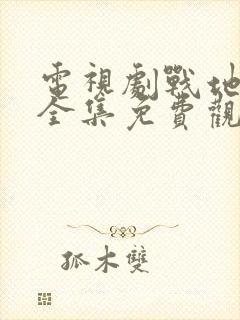 電視劇戰地
全集免費觀
孤木雙